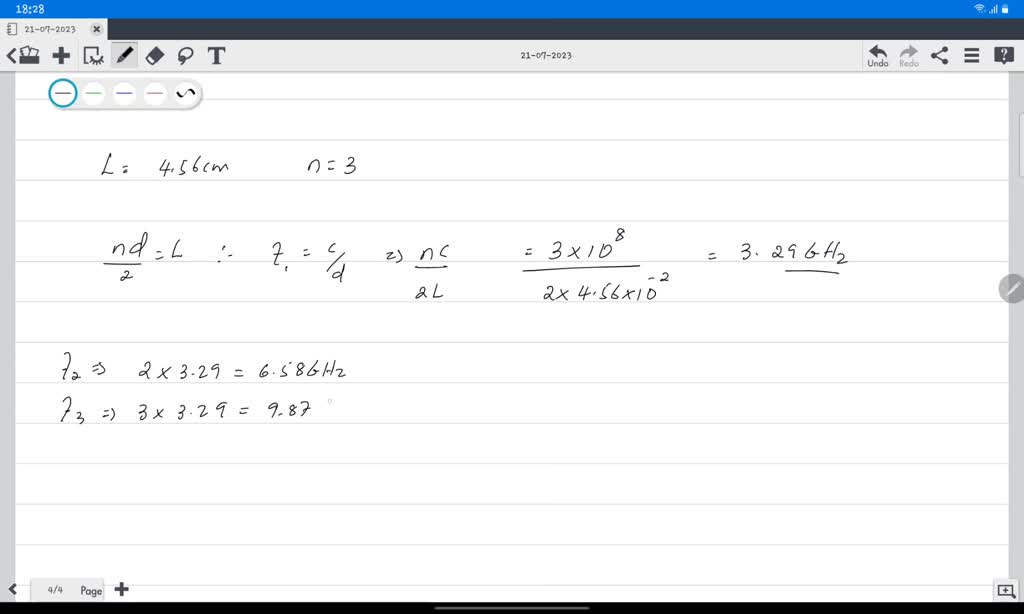 18:28
21-07-2023
T 21-07-2023 Undo Redo
L = 4.56cm n = 3
nd/2 = L ∴ f₁ = c/d ⇒ nc/2L = 3×10⁸/2×4.56×10⁻² = 3.29GHz
f₂ ⇒ 2 × 3.29 = 6.58GHz
f₃ ⇒ 3 × 3.29 = 9.87
4/4 Page